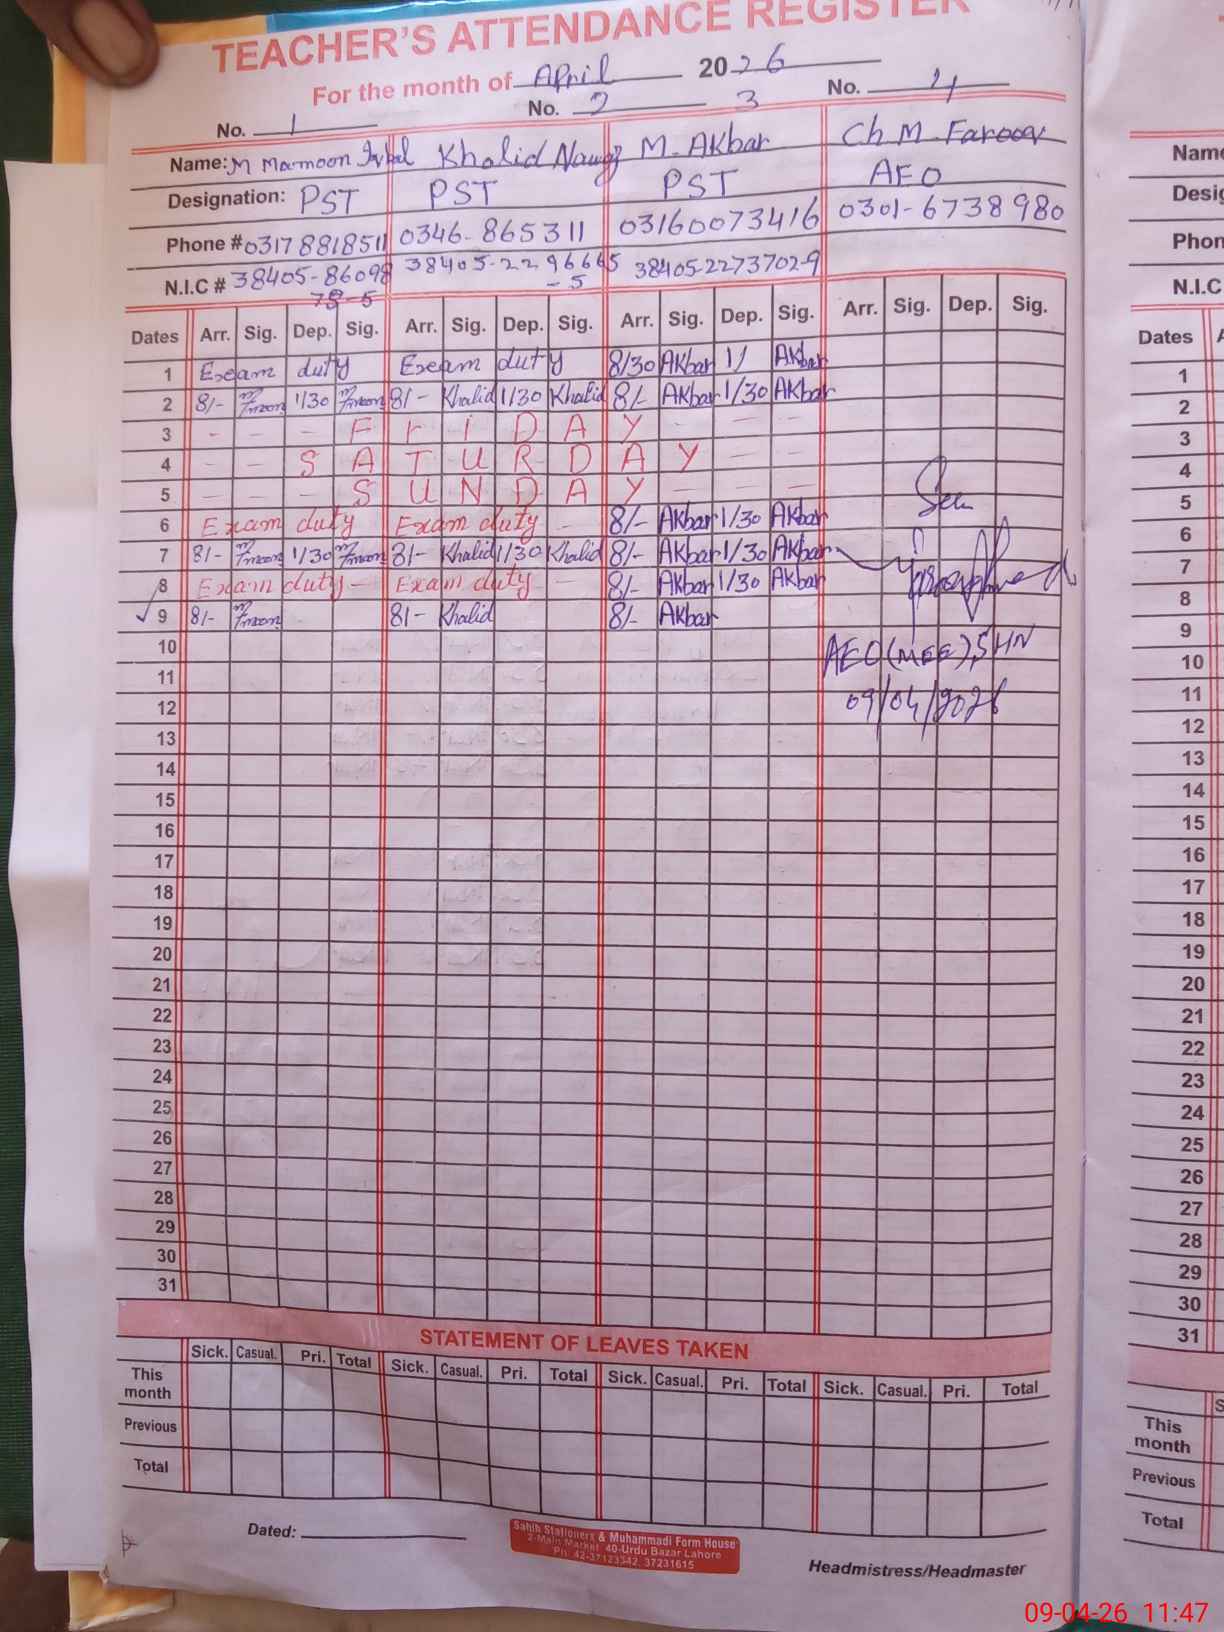 TEACHER'S ATTENDANCE REGISTER
For the month of April 2026
No. 1 No. 2 3 No. 4
Name: M Mamoon Iqbal Khalid Nawaz M. Akbar Ch M. Farooq
Designation: PST PST PST AEO
Phone # 03178818511 0346-865311 03160073416 0301-6738980
N.I.C # 38405-86098 38405-2296665 38405-2273702-9
78-5 -5
Dates Arr. Sig. Dep. Sig. Arr. Sig. Dep. Sig. Arr. Sig. Dep. Sig. Arr. Sig. Dep. Sig.
1 Exeam duty Exeam duty 8/30 Akbar 1/ Akbar
2 8/- 1/30 8/- Khalid 1/30 Khalid 8/- Akbar 1/30 Akbar
3 - - - F r i D A Y - - -
4 - - S A T U R D A Y - -
5 - - - S U N D A Y - - -
6 Exam duty Exam duty - 8/- Akbar 1/30 Akbar
7 8/- 1/30 8/- Khalid 1/30 Khalid 8/- Akbar 1/30 Akbar
8 Exam duty - Exam duty - 8/- Akbar 1/30 Akbar
9 8/- 8/- Khalid 8/- Akbar
Seen
AEO (MEE), SHN
09/04/2026
10
11
12
13
14
15
16
17
18
19
20
21
22
23
24
25
26
27
28
29
30
31
STATEMENT OF LEAVES TAKEN
Sick. Casual. Pri. Total Sick. Casual. Pri. Total Sick. Casual. Pri. Total Sick. Casual. Pri. Total
This month
Previous
Total
Dated:
Sahib Stationers & Muhammadi Form House
2-Main Market 40-Urdu Bazar Lahore
Ph: 42-37123342, 37231615
Headmistress/Headmaster
Name
Desig
Phon
N.I.C
Dates
1
2
3
4
5
6
7
8
9
10
11
12
13
14
15
16
17
18
19
20
21
22
23
24
25
26
27
28
29
30
31
This month
Previous
Total
09-04-26 11:47